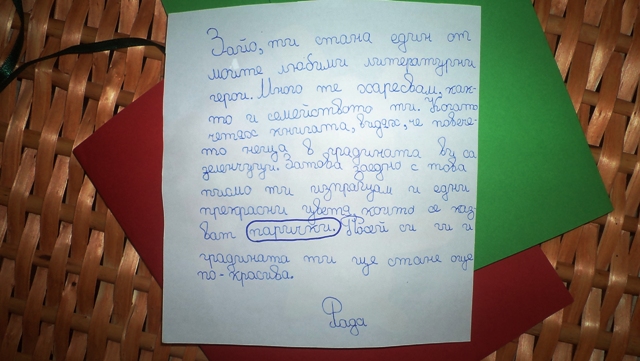 Зайо, ти стана един от
моите любими литературни
герои. Много те харесвам, как-
то и семейството ти. Когато
четях книгата, видях, че повече-
то неща в градината ви са
зеленчуци. Затова заедно с това
писмо ти изпращам и едни
прекрасни цветя, които се каз-
ват парички. Посей си ги и
градината ти ще стане още
по-красива.
Рада